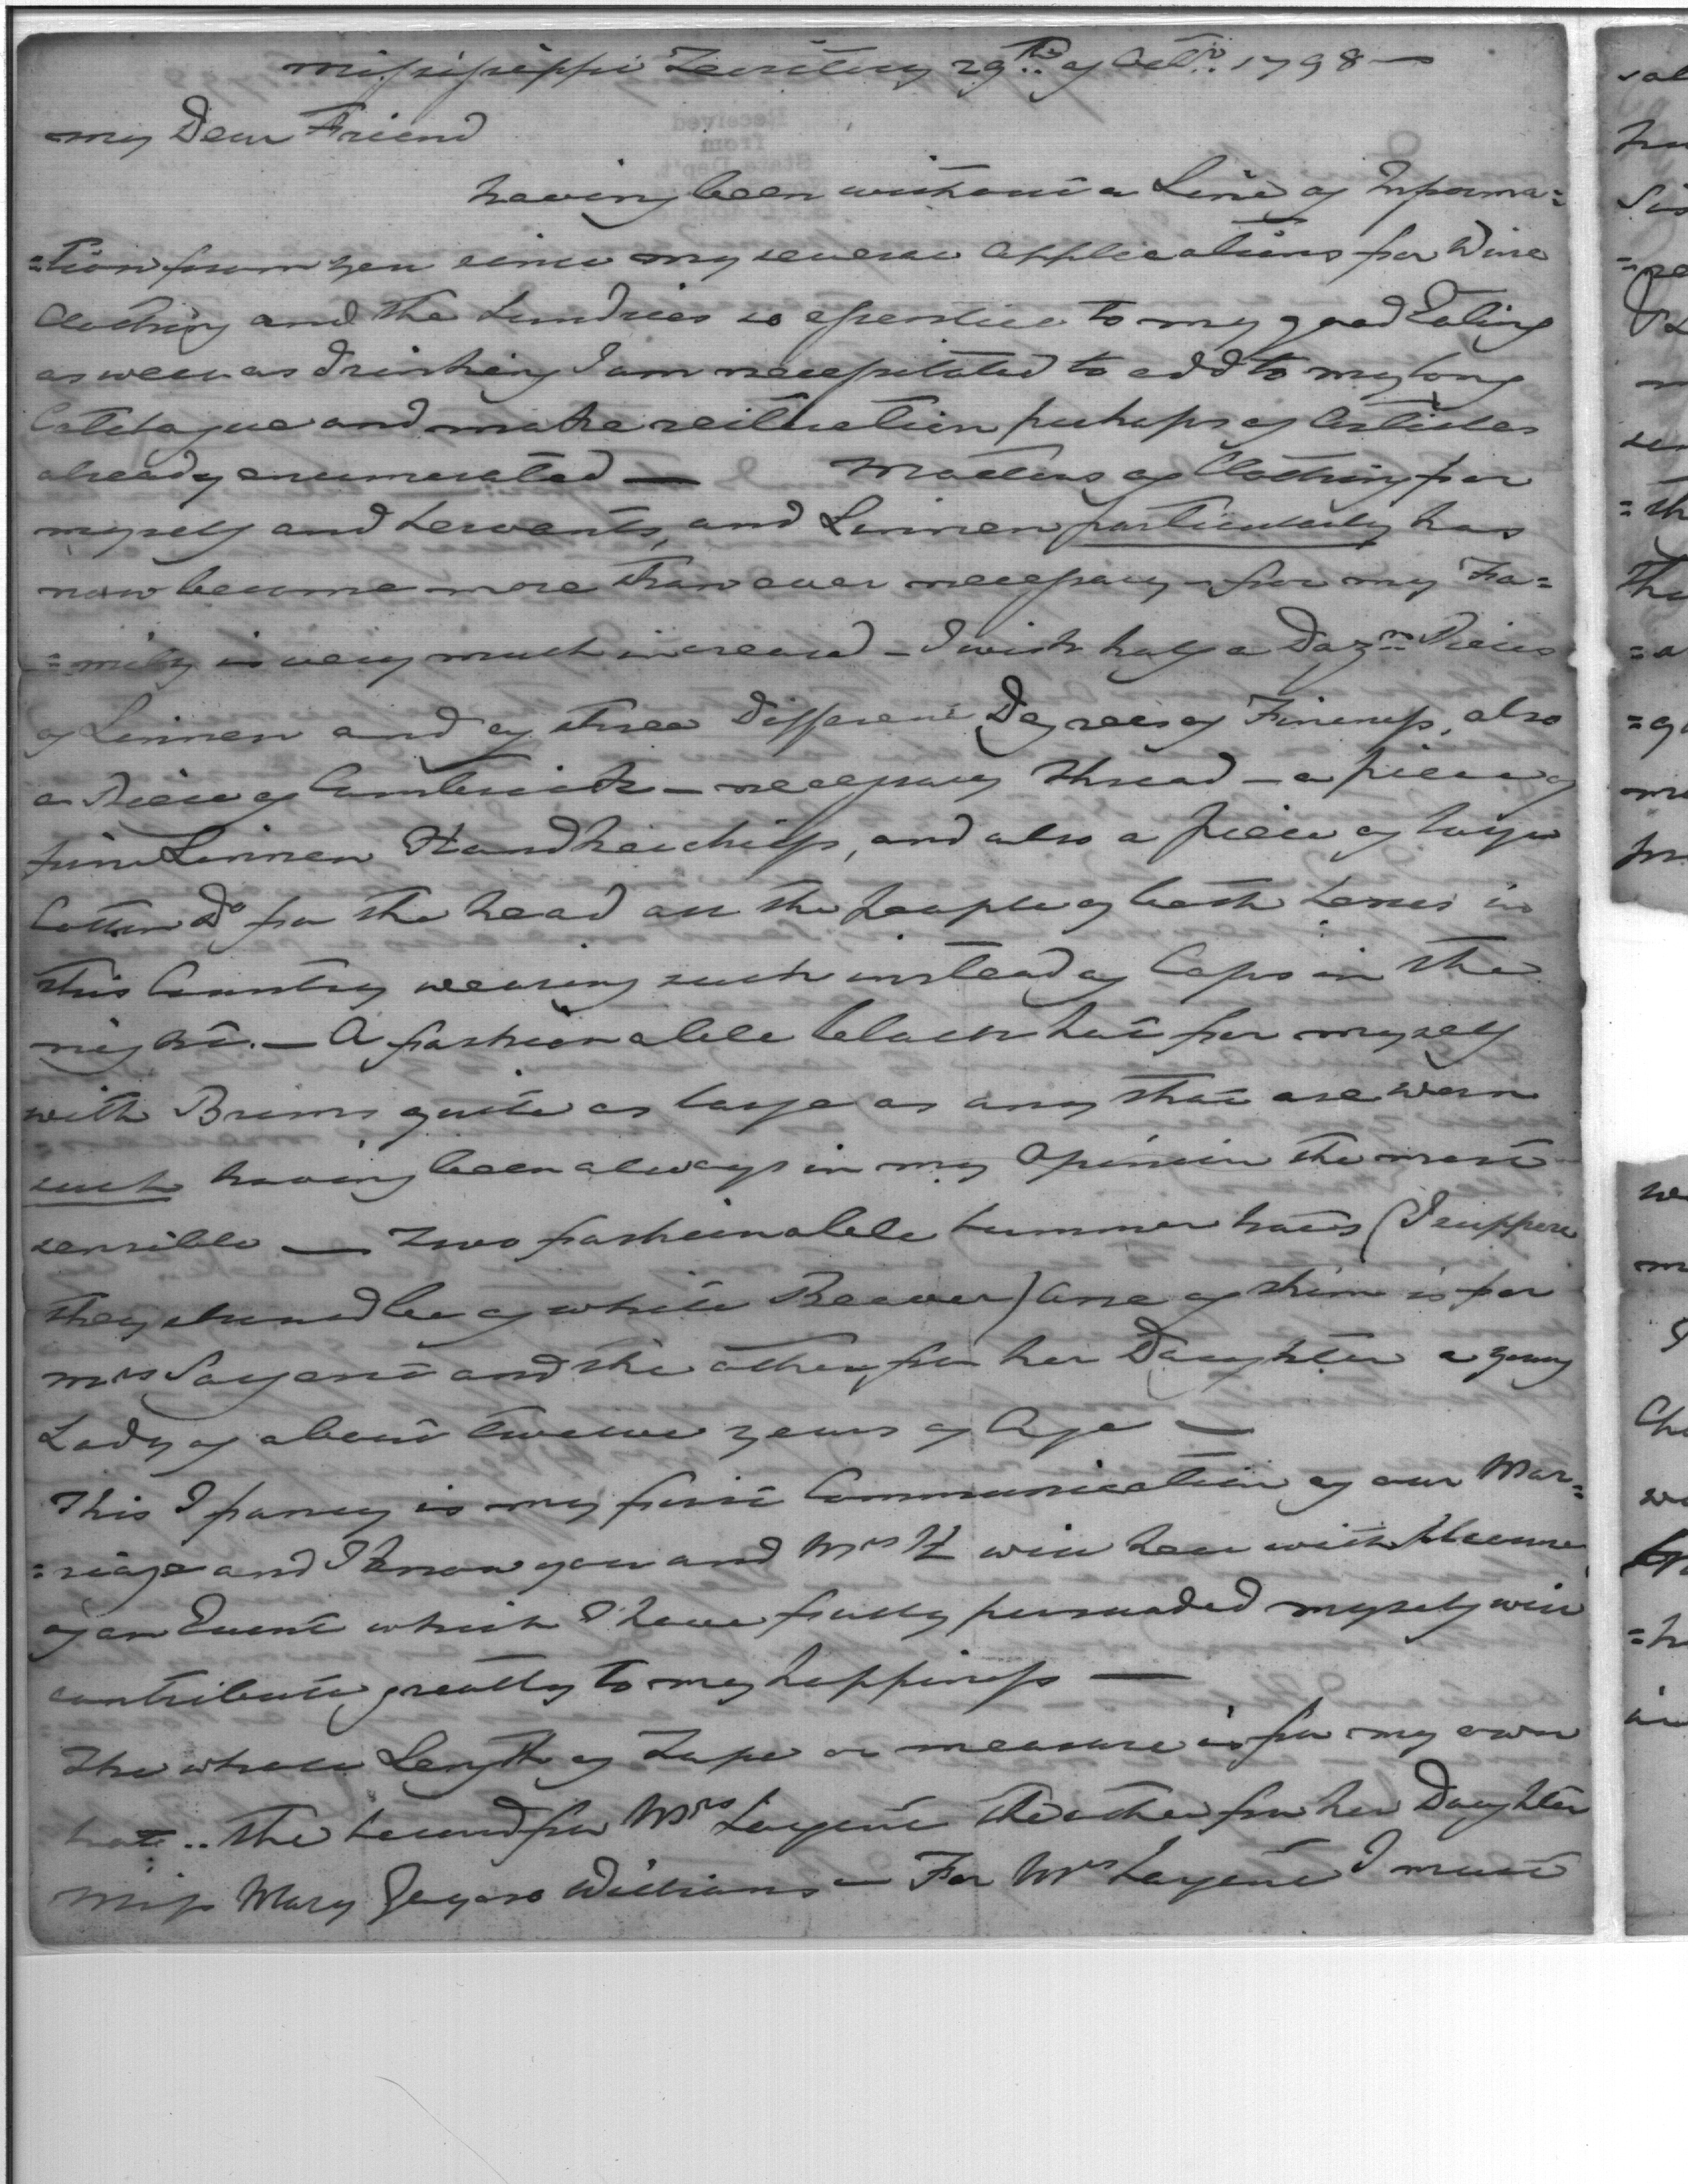 Missisippi Territory 29th.. of Octr.. 1798 —
my Dear Friend
having been without a Line of Informa=
=tion from you since my several applications for Wine
Clothing and the Sundries so essential to my good Eating
as well as drinking I am necessitated to add to my long
Catalogue and make reiteration perhaps of Articles
already enumerated — Matters of Clothing for
myself and Servants, and Linnen particularly has
now become more than ever necessary — for my Fa=
=mily is very much increased — I wish half a Dozn.. Pieces
of Linnen and of three Different Degrees of Fineness, also
a Piece of Cambrick — necessary Thread — a piece of
fine Linnen Handkerchiefs, and also a piece of large
Cotton Do for the head all the people of both Sexes in
this Country wearing such instead of Caps in the
night. — A fashionable black hat for myself
with Brims quite as large as any that are worn
such having been always in my Opinion the most
sensible — Two fashionable Summer hats (I suppose
they should be of white Beaver) One of them is for
Mrs Sargent and the other for her Daughter a young
Lady of about twelve years of Age —
This I fancy is my first Communication of our Mar=
=riage and I know you and Mrs will hear with pleasure
of an Event which I have fully persuaded myself will
contribute greatly to my happiness —
The whole Length of Tape or measure is for my own
hat.. The Second for Mrs Sargent The other for her Daughter
Miss Mary Williams — For Mrs Sargent I must
Received
from
State Dep't.